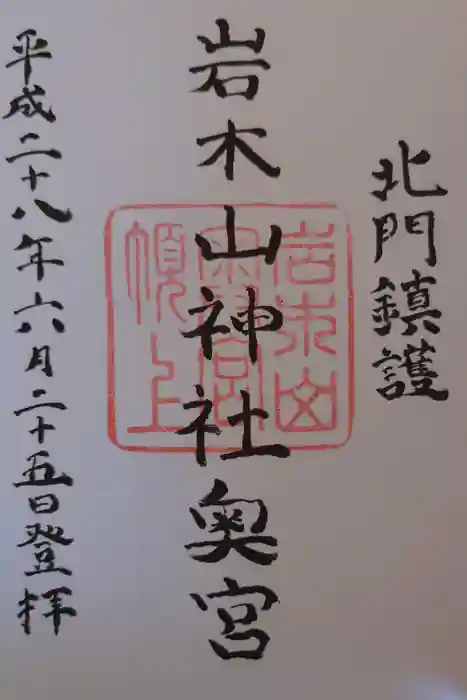 北門鎮護
岩木山神社奥宮
平成二十八年六月二十五日登拝
岩木山
奥宮
頂上